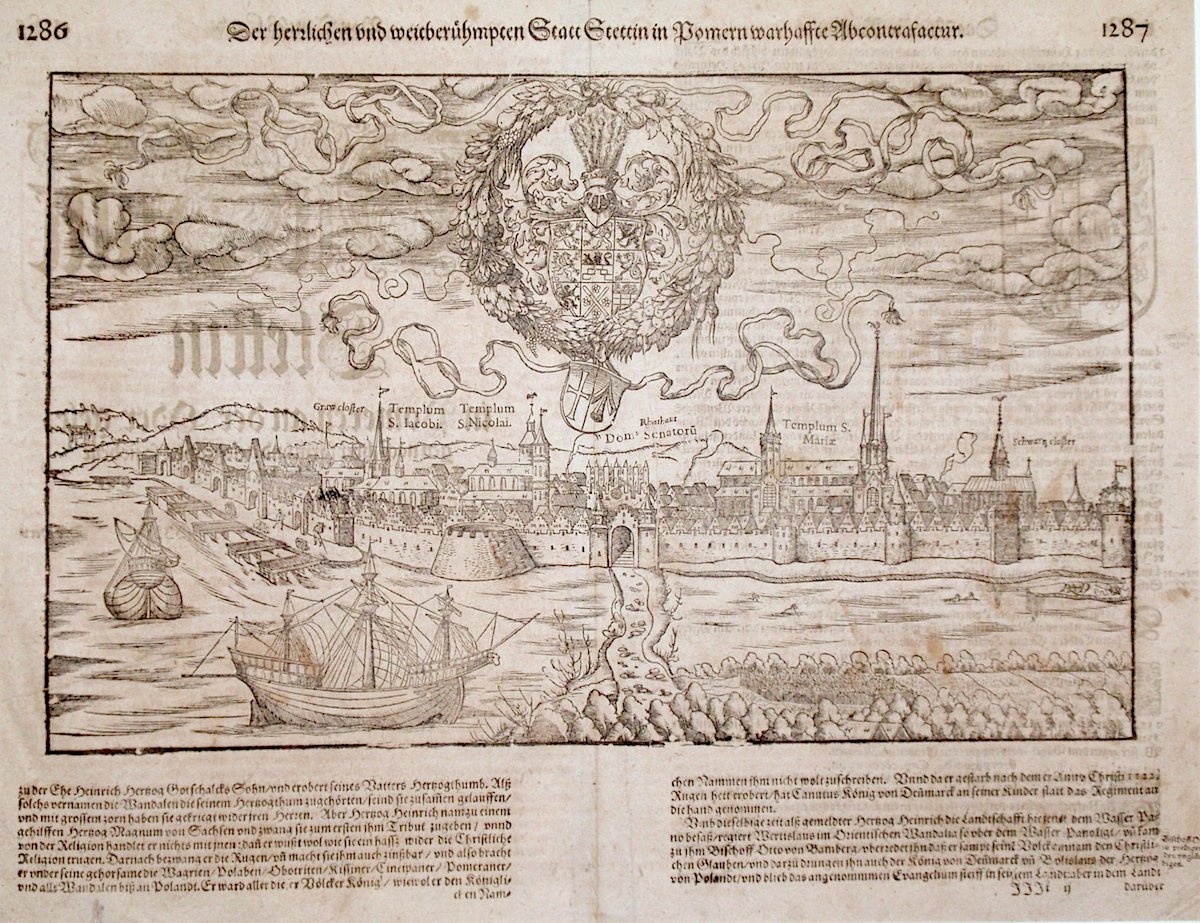 1286
Der herrlichen vnd weitberühmpten Statt Stettin in Pomern warhaffte Abcontrafactur.
1287
Graw closter
Templum S. Iacobi.
Templum S. Nicolai.
Rhathaus
Domꝰ Senatorū
Templum S. Mariæ
Schwarz closter
zu der Ehe Heinrich Hertzog Gotschalcks Sohn/vnd erobert seines Vatters Hertzogthumb. Alß
solchs vernamen die Wandalen die seinem Hertzogthum zugehörten/seind sie zusamen gelauffen/
vnd mit grossem zorn haben sie gekriegt wider jren Herren. Aber Hertzog Heinrich nam zu einem
gehilffen Hertzog Magnum von Sachsen vnd zwang sie zum ersten jhm Tribut zugeben/ vnnd
von der Religion handlet er nichts mit jnen: dañ er wußt wol wie sie ein hassz wider die Christliche
Religion trugen. Darnach bezwang er die Rugen/vñ macht sie jhm auch zinßbar/ vnd also bracht
er vnder seine gehorsame die Wagrien/Polaben/Obotriten/Kissiner/Circipaner/Pomeraner/
vnd alls Wandalen biß an Polandt. Er ward aller die er Völcker König/ wiewol er den Königli-
chen Nam-
chen Nammen jhm nicht wolt zuschreiben. Vnnd da er gestarb nach dem er Anno Christi 1122.
Rugen hett erobert/hat Canutus König von Deñmarck an seiner Kinder statt das Regiment an
die hand genommen.
Vnb dieselbige zeit alß gemeldter Hertzog Heinrich die Landtschafft dieset dem Wasser Pa-
no besaß/regiert Wertislaus im Orientischen Wandalia so vber dem Wasser Pano ligt/ vñ kam
zu jhm Bischoff Otto von Bamberg/vberredet jhn daß er sampt seim Volck annam den Christli-
chen Glauben/vnd darzu drungen jhn auch der König von Deñmarck vñ Bolislaus der Hertzog
von Polandt/vnd blieb das angenommen Evangelium steiff in seinem Landt: aber in dem Landt
JJJJ ij
darüber